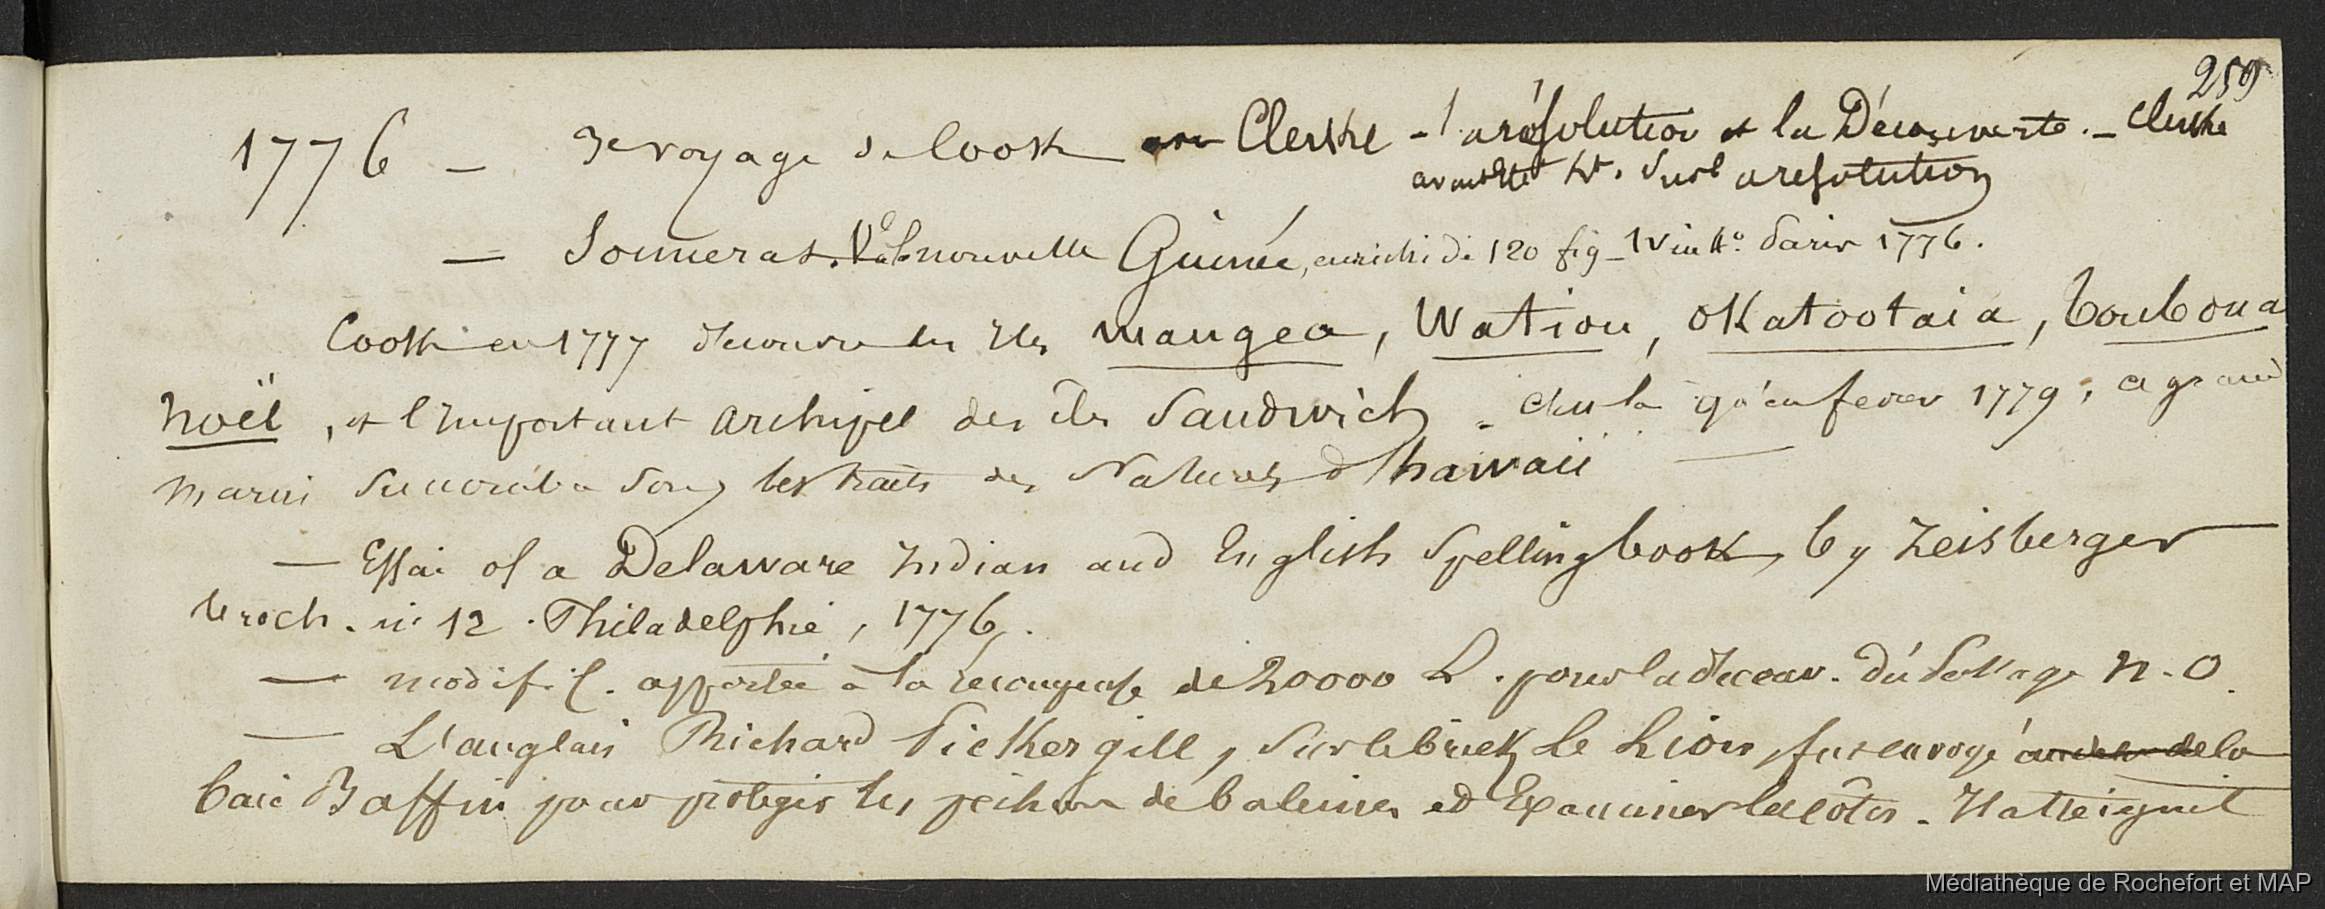 259
1776 — 3e voyage de Cook avec Clerke - la résolution et la Découverte. - Clerke
avait été Lt. sur la resolution
— Sonnerat. Ve à la nouvelle Guinée, enrichi de 120 fig - 1 v in 4o. Paris 1776.
Cook en 1777 decouvre les Iles mangea, Watiou, Okatootaia, Toubouai
Noël, et l'important archipel des îles Sandwich. C'est là qu'en fevrier 1779, ce grand
marin succomba sous les traits des Naturels d'hawaii —
— Essai of a Delaware Indian and English Spelling book, by Zeisberger
broch. in 12. Philadelphie, 1776.
— modific. apportée à la recompense de 20000 L. pour la decouv. du Passage N. O.
— L'anglais Richard Pickersgill, sur le brick le Lion, fut envoyé de la
baie Baffin pour protéger les pêcheurs de baleines et Examiner les côtes. Il atteignit
Médiathèque de Rochefort et MAP